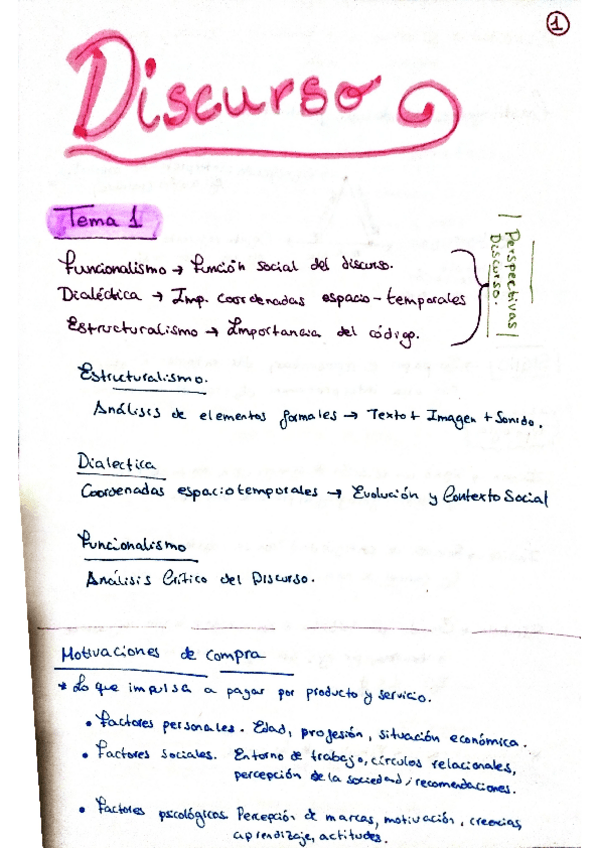 1
Discurso
Tema 1
Funcionalismo → Función social del discurso.
Dialéctica → Imp. coordenadas espacio-temporales
Estructuralismo → Importancia del código.
Perspectivas
Discurso.
Estructuralismo.
Análisis de elementos formales → Texto + Imagen + Sonido.
Dialectica
Coordenadas espaciotemporales → Evolución y Contexto Social
Funcionalismo
Análisis Crítico del Discurso.
Motivaciones de compra
* Lo que impulsa a pagar por producto y servicio.
• Factores personales. Edad, profesión, situación económica.
• Factores sociales. Entorno de trabajo, círculos relacionales,
percepción de la sociedad, recomendaciones.
• Factores psicológicos. Percepción de marcas, motivación, creencias,
aprendizaje, actitudes.